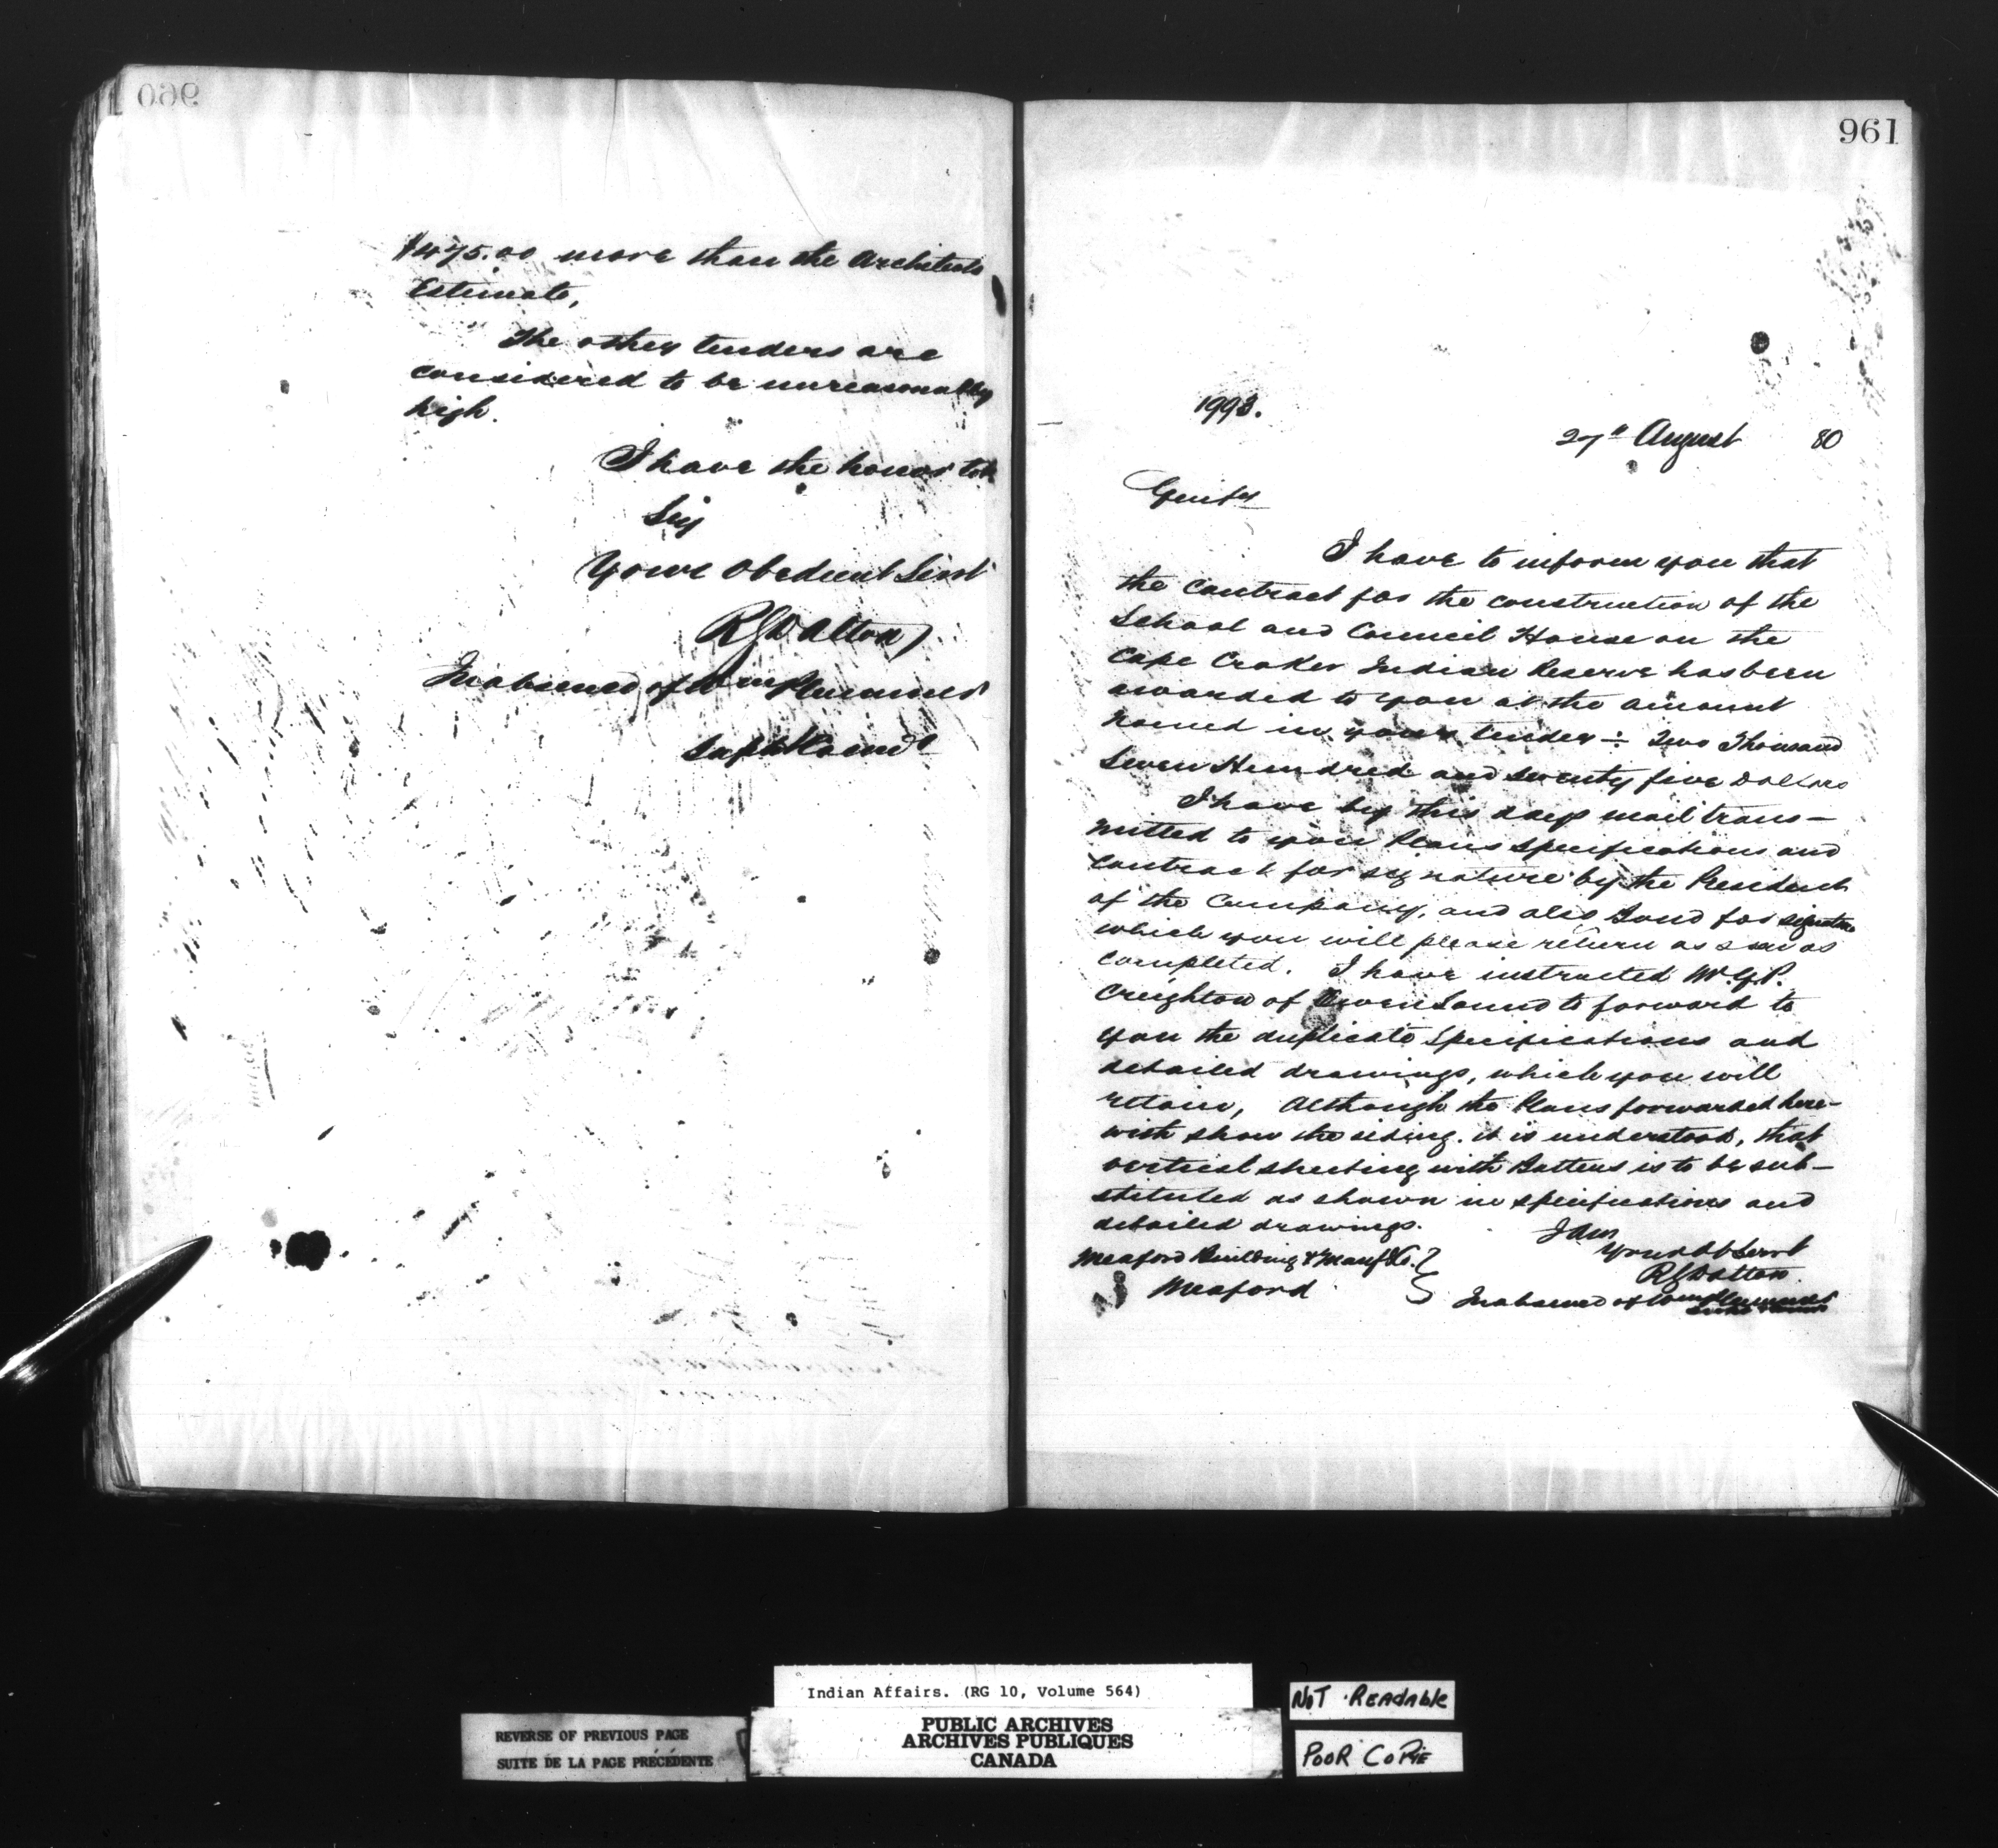 960
$475.00 more than the Architects
Estimate,
The other tenders are
considered to be unreasonably
high.
I have the honor to be
Sir
Your Obedient Servt
RGDalton
In absence of Wm Plummer
Supt & Comr
961
1993.
27" August 80
Gents
I have to inform you that
the Contract for the construction of the
School and Council House on the
Cape Croker Indian Reserve has been
awarded to you at the amount
named in your tender ÷ Two Thousand
Seven Hundred and Seventy five Dollars
I have by this days mail trans-
mitted to you Plans Specifications and
Contract for signature by the President
of the Company, and also Bond for signature
which you will please return as soon as
completed. I have instructed Mr. G.P.
Creighton of Owen Sound to forward to
you the duplicate Specifications and
detailed drawings, which you will
retain, Although the Plans forwarded here-
with show the siding. it is understood, that
vertical sheeting with Battens is to be sub-
stituted as shown in specifications and
detailed drawings.
I am
Your Obt Servt
RGDalton.
In absence of Wm Plummer
Meaford Building & Manuf Co.
Meaford
Indian Affairs. (RG 10, Volume 564)
PUBLIC ARCHIVES
ARCHIVES PUBLIQUES
CANADA
REVERSE OF PREVIOUS PAGE
SUITE DE LA PAGE PRÉCÉDENTE
NOT READABLE
POOR COPIE